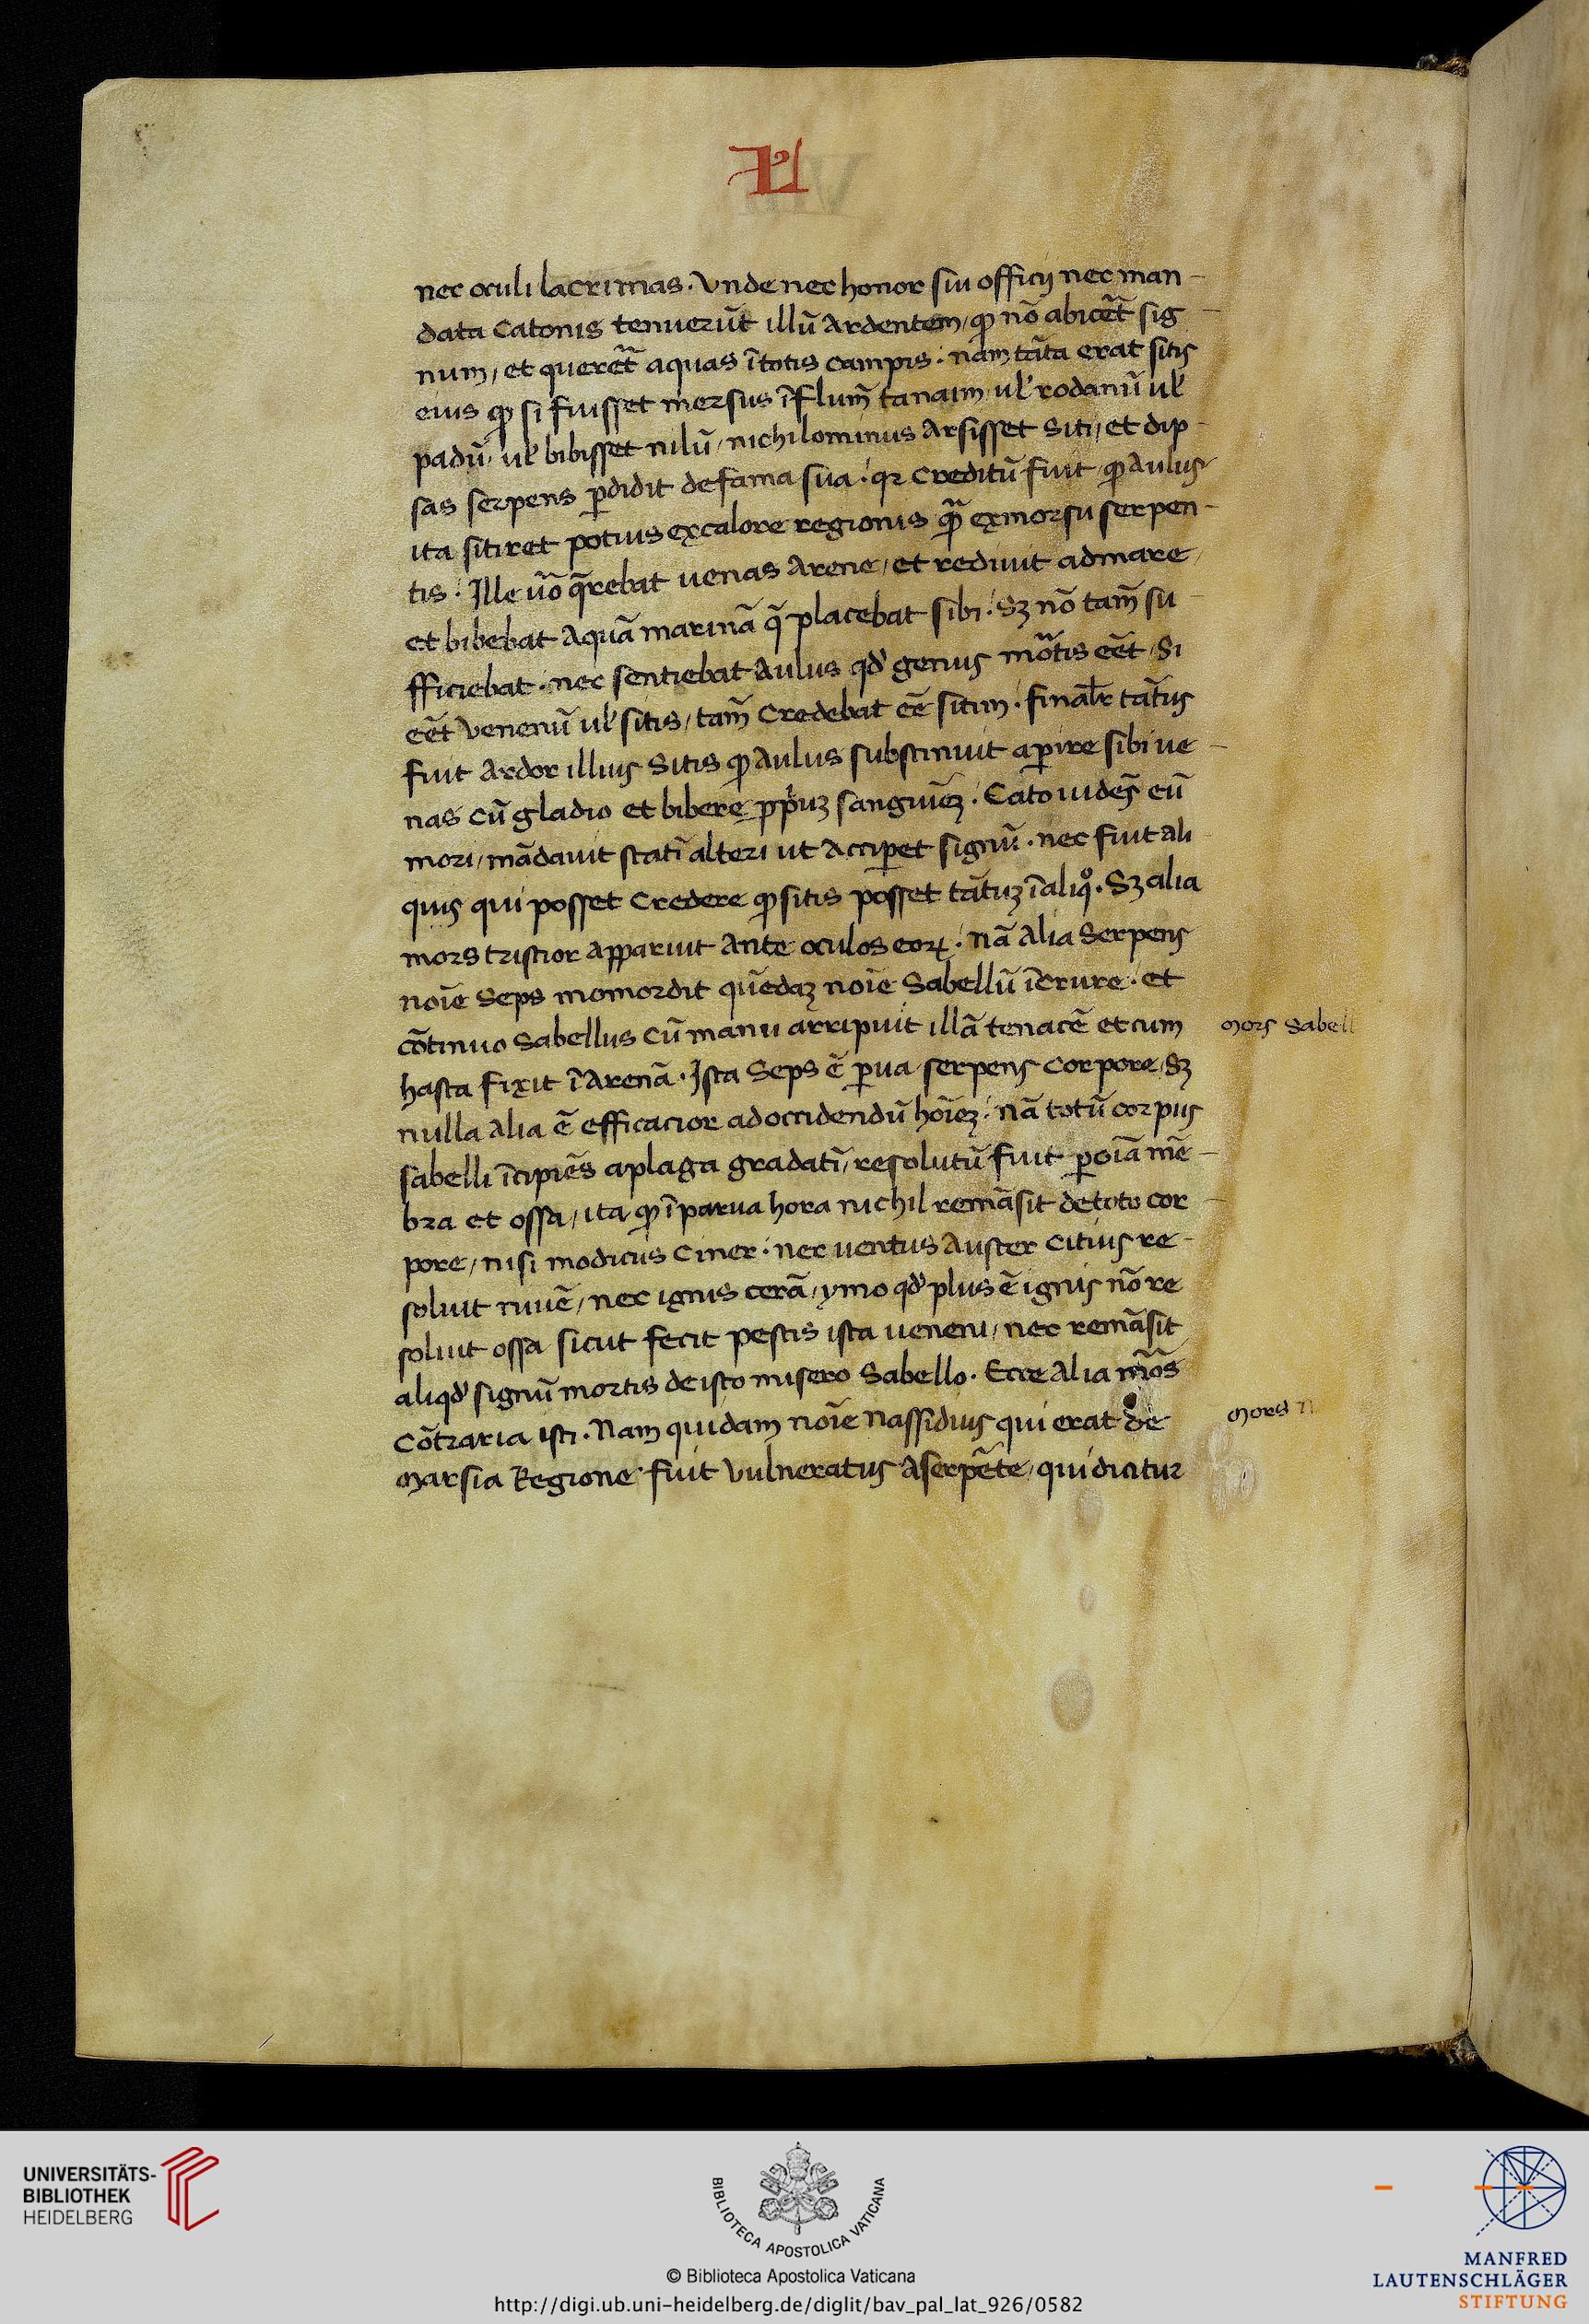 nec oculi lacrimas. Vnde nec honor sui officij nec man-
data Catonis tenuerūt illū ardentem, ꝙ nō abicēt sig-
num, et querēt aquas ī totis campis. nam tāta erat sitis
eius ꝙ si fuisset mersus ī flum̄ tanaim ul' rodanū ul'
padū, ul' bibisset nilū, nichilominus arsisset siti, et dip-
sas serpens ꝑdidit de fama sua. qꝛ creditū fuit ꝙ Aulus
ita sitiret potius ex calore regionis qᷓ ex morsu serpen-
tis. Ille ūo q̄rebat uenas arene, et rediuit ad mare,
et bibebat aquā marinā q̄ placebat sibi. Sꝫ nō tam̄ su-
fficiebat. nec sentiebat Aulus qd' genus mōtis eēt, Si
eēt venenū ul' sitis, tam̄ credebat eē sitim. finalr̄ tātus
fuit ardor illius sitis ꝙ Aulus substinuit aꝑire sibi ue-
nas cū gladio et bibere ppʳiuꝫ sanguīeꝫ. Cato uidēs eū
mori, mādauit statī alteri ut acciꝑet signū. nec fuit ali-
quis qui posset credere ꝙ sitis posset tātuꝫ ī aliqᵒ. Sꝫ alia
mors tristior apparuit ante oculos eoꝝ. nā alia serpens
noīe Seps momordit quēdaꝫ noīe Sabellū ī crure. et
cōtinuo Sabellus cū manu arripuit illā tenacē et cum
mors Sabell
hasta fixit ī arenā. Ista Seps ē ꝑua serpens corpore, sꝫ
nulla alia ē efficacior ad occidendū hoīeꝫ. nā totū corpus
sabelli īcipiēs a plaga gradatī, resolutū fuit ꝑ oīa mē-
bra et ossa, ita ꝙ ī parua hora nichil remāsit de toto cor-
pore, nisi modicus ciner. nec uentus auster citius re-
soluit niuē, nec ignis cerā, ymo qd' plus ē ignis nō re
soluit ossa sicut fecit pestis ista ueneni, nec remāsit
aliqd' signū mortis de isto misero Sabello. Ecce alia mōs
cōtraria isti. Nam quidam noīe Nassidius qui erat de
mors N
Marsia Regione fuit vulneratus a serpēte, qui dicitur
UNIVERSITÄTS-
BIBLIOTHEK
HEIDELBERG
BIBLIOTECA APOSTOLICA VATICANA
© Biblioteca Apostolica Vaticana
http://digi.ub.uni-heidelberg.de/diglit/bav_pal_lat_926/0582
MANFRED
LAUTENSCHLÄGER
STIFTUNG